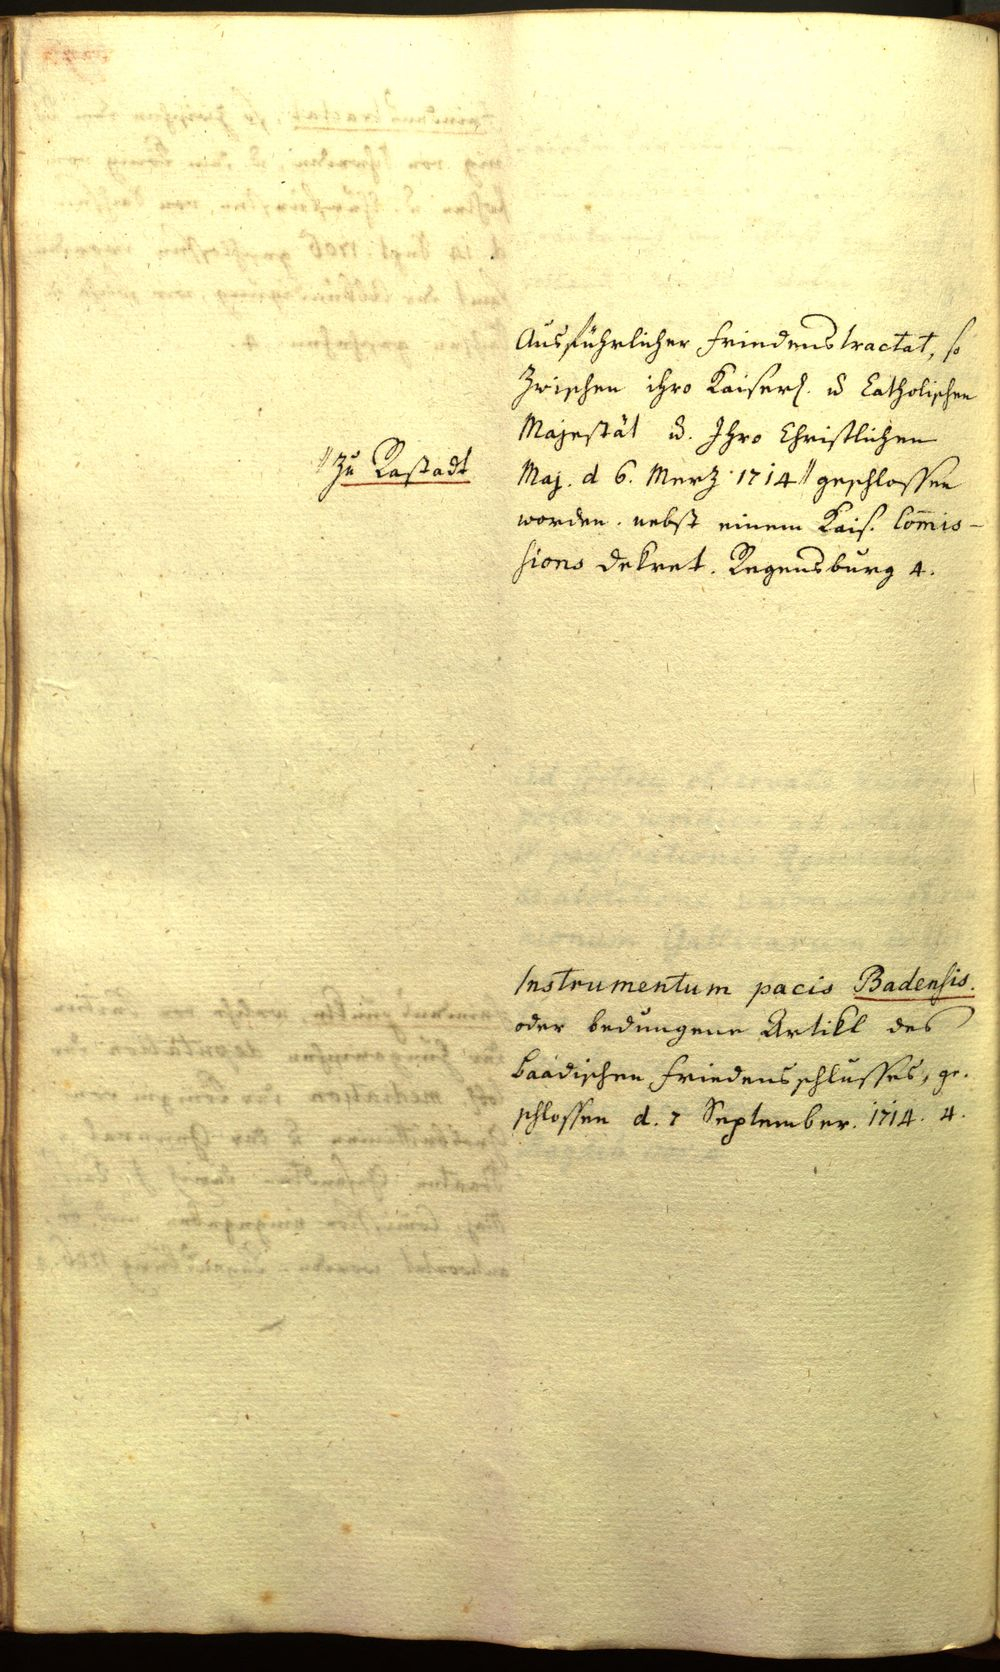 Ausführlicher Friedens tractat, so
zwischen ihro Kaiserl. u Catholischen
Majestät u. Ihro Christlichen
‖ zu Rastadt
Maj. d 6. Merz 1714 ‖ geschlossen
worden. nebst einem Kais. Com̄is-
sions Dekret. Regensburg 4.
Instrumentum pacis Badensis.
oder bedungene Artikl des
Baadischen Friedensschlusses, ge-
schlossen d. 7 September. 1714. 4.